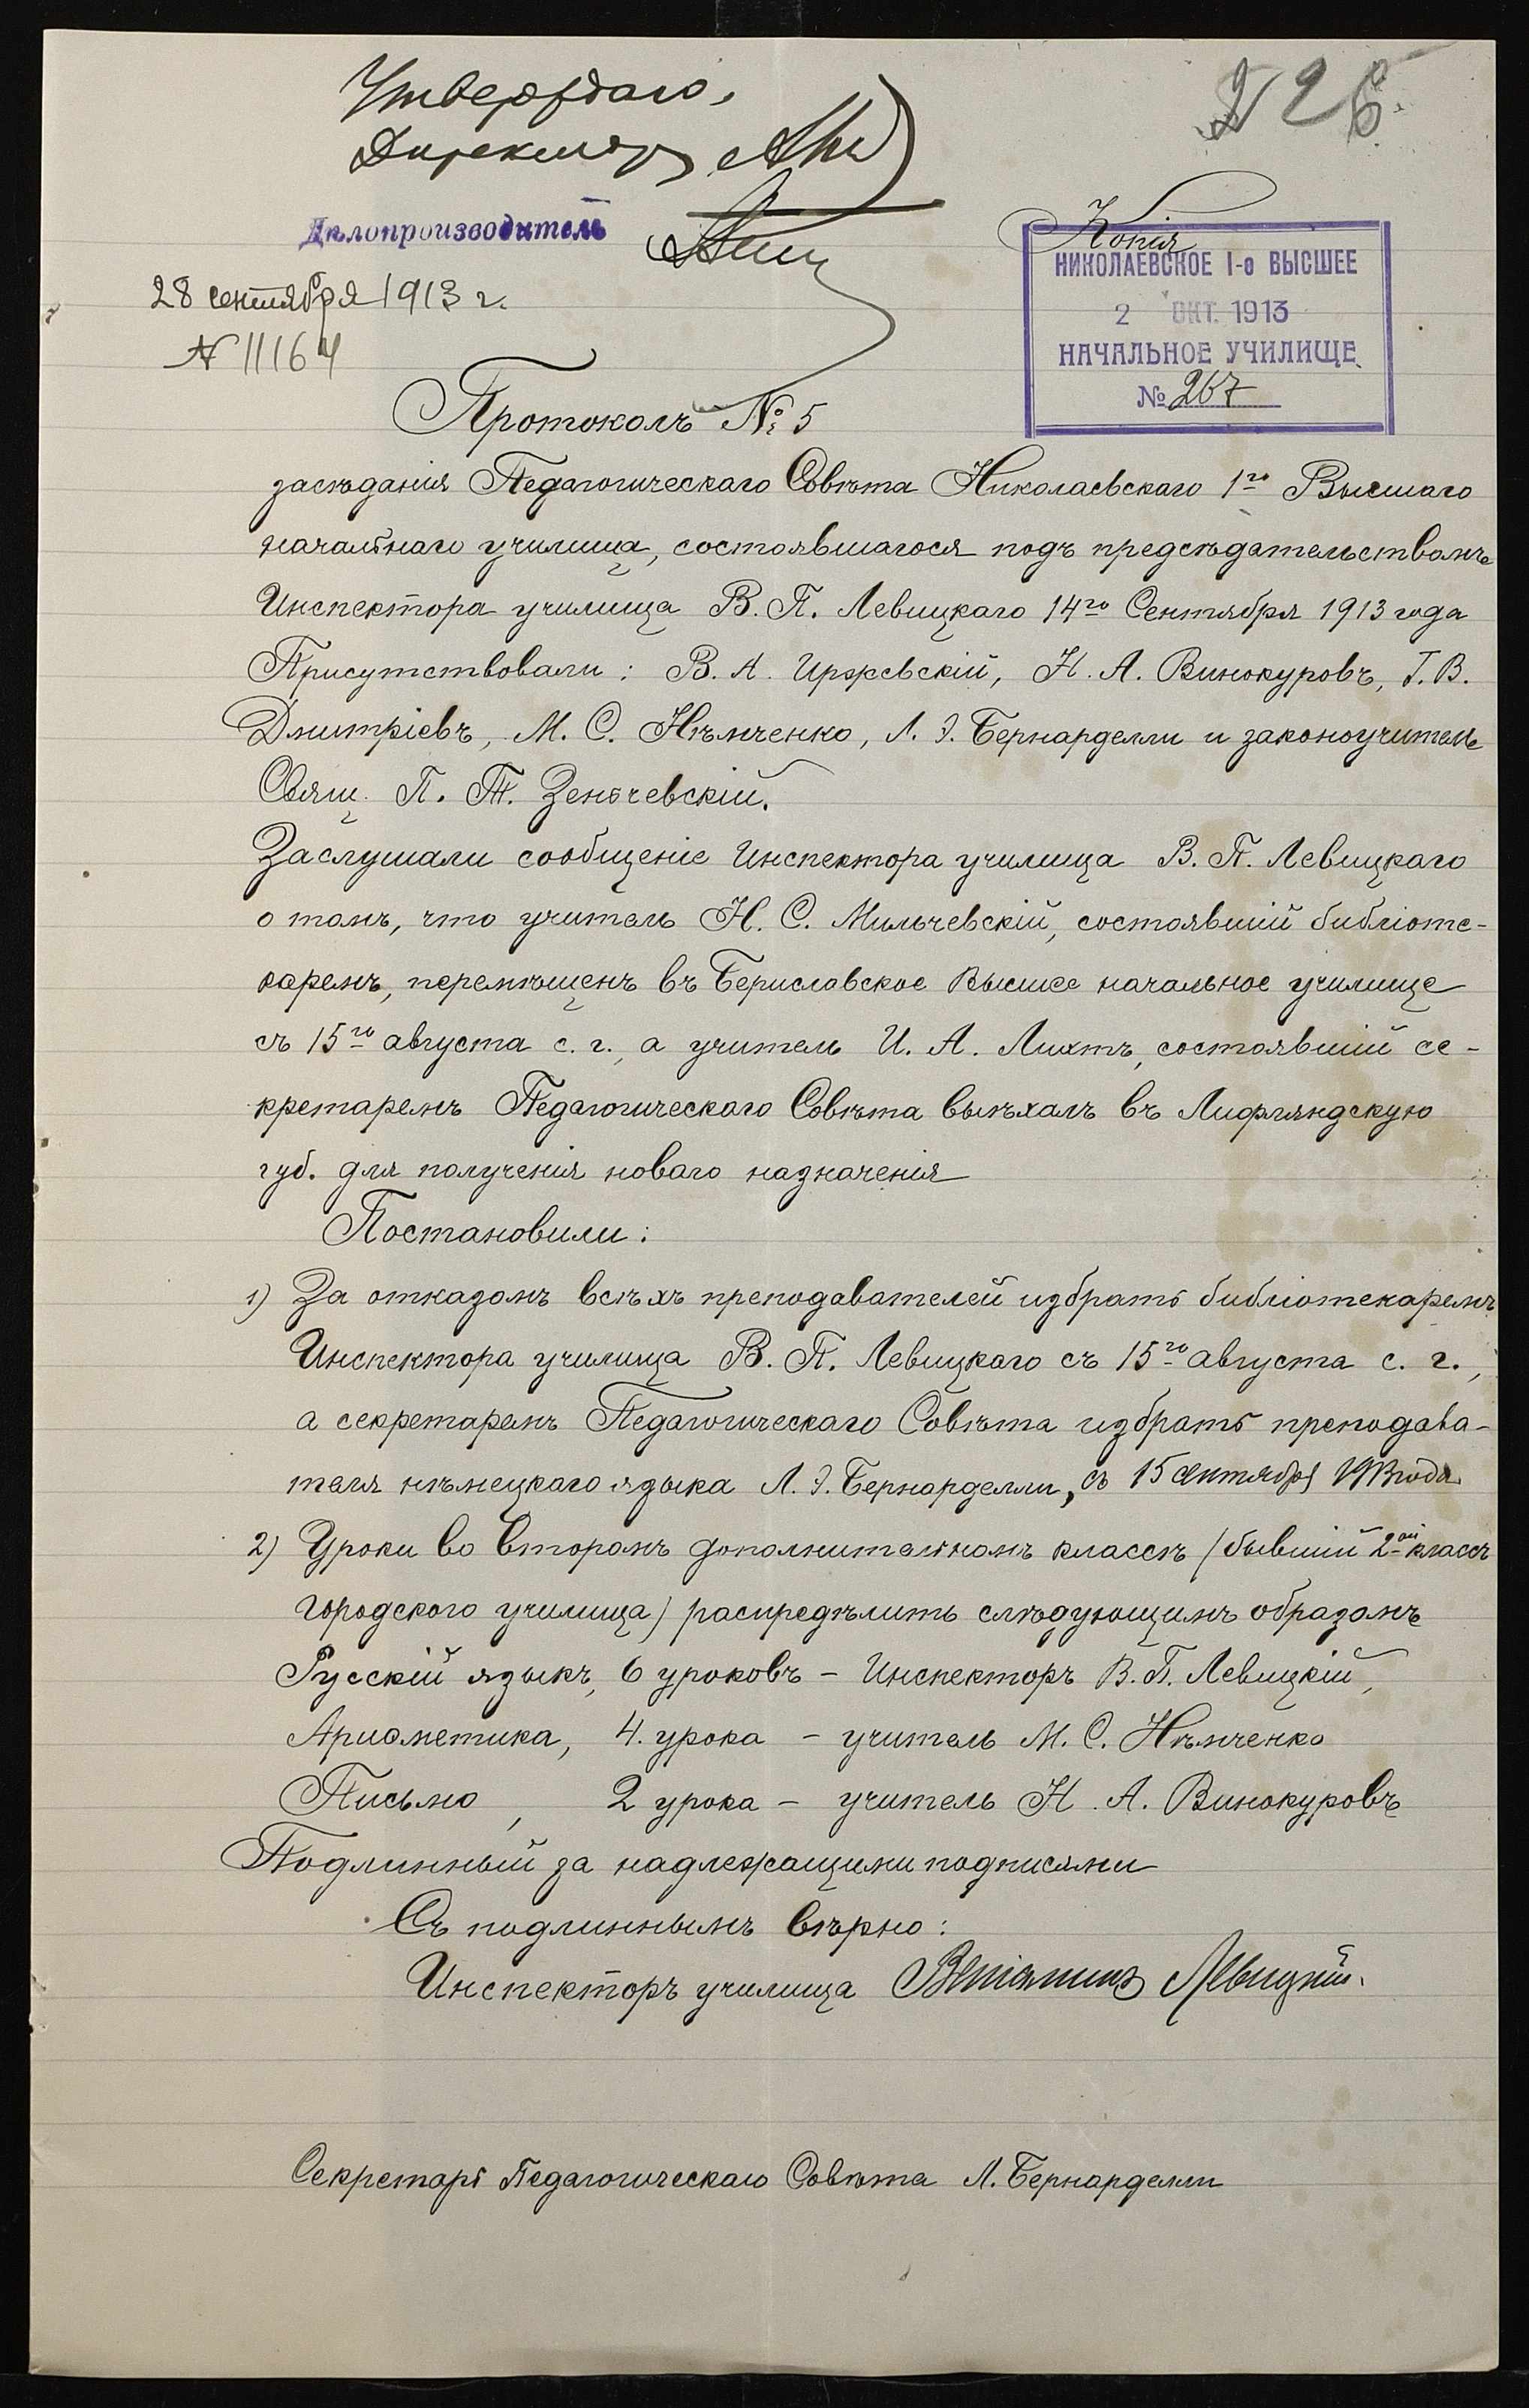 Утверждаю.
Директоръ
226.
Дѣлопроизводитель
Копія
НИКОЛАЕВСКОЕ 1-о ВЫСШЕЕ
2 ОКТ. 1913
НАЧАЛЬНОЕ УЧИЛИЩЕ
№ 267
28 сентября 1913 г.
№ 11164
Протоколъ № 5
засѣданія Педагогическаго Совѣта Николаевскаго 1го Высшаго
начальнаго училища, состоявшагося подъ предсѣдательствомъ
Инспектора училища В. П. Левицкаго 14го Сентября 1913 года
Присутствовали: В. А. Иржевскій, Н. А. Винокуровъ, Г. В.
Дмитріевъ, М. С. Нѣмченко, Л. Э. Бернарделли и законоучитель
Свящ. П. Т. Зеньчевскій.
Заслушали сообщеніе Инспектора училища В. П. Левицкаго
о томъ, что учитель Н. С. Мильчевскій, состоявшій библіоте-
каремъ, перемѣщенъ въ Бериславское Высшее начальное училище
съ 15го августа с. г., а учитель И. А. Лихтъ, состоявшій се-
кретаремъ Педагогическаго Совѣта выѣхалъ въ Лифляндскую
губ. для полученія новаго назначенія
Постановили:
1) За отказомъ всѣхъ преподавателей избрать библіотекаремъ
Инспектора училища В. П. Левицкаго съ 15го августа с. г.,
а секретаремъ Педагогическаго Совѣта избрать преподава-
теля нѣмецкаго языка Л. Э. Бернарделли, съ 15 сентября 1913 года
2) Уроки во второмъ дополнительномъ классѣ (бывшій 2ой классъ
городского училища) распредѣлить слѣдующимъ образомъ
Русскій языкъ, 6 уроковъ – Инспекторъ В. П. Левицкій,
Ариѳметика, 4 урока – учитель М. С. Нѣмченко
Письмо, 2 урока – учитель Н. А. Винокуровъ
Подлинный за надлежащими подписями
Съ подлиннымъ вѣрно:
Инспекторъ училища Веніаминъ Левицкій.
Секретарь Педагогическаго Совѣта Л. Бернарделли